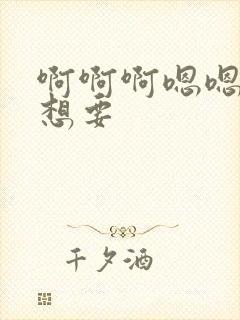 啊啊啊嗯嗯
想要
千夕酒